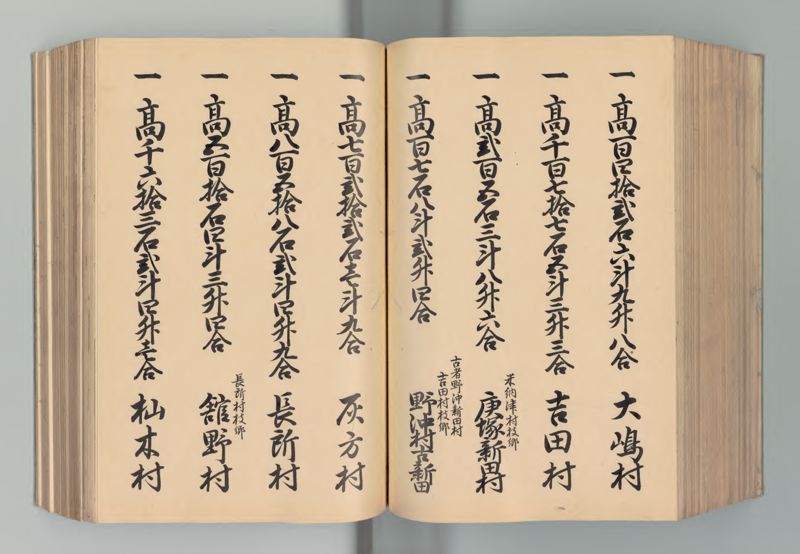 一 高百四拾弐石六斗九升八合 大嶋村
一 高千百七拾七石五斗三升三合 吉田村
一 高弐百五石三斗八升六合 米納津村枝郷 庚塚新田村
一 高百七石八斗弐升四合 古者野沖新田村 吉田村枝郷 野沖村古新田
一 高七百弐拾弐石壱斗九合 灰方村
一 高八百五拾八石弐斗四升九合 長所村
一 高五百拾石四斗三升四合 長所村枝郷 舘野村
一 高千六拾三石弐斗四升壱合 杣木村